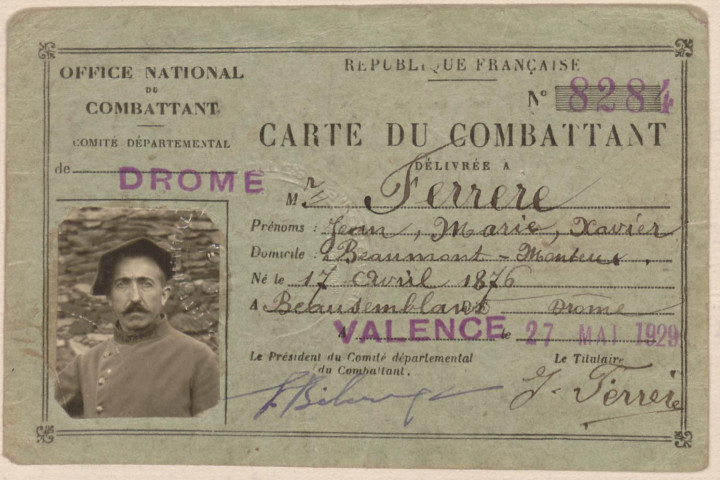 OFFICE NATIONAL
DU
COMBATTANT
COMITÉ DÉPARTEMENTAL
de DROME
REPUBLIQUE FRANÇAISE
N° 8284
CARTE DU COMBATTANT
DÉLIVRÉE A
Mr Ferrere
Prénoms : Jean, Marie, Xavier
Domicile : Beaumont - Monteux.
Né le 17 Avril 1876
A Beausemblant Drome
A VALENCE le 27 MAI 1929
Le Président du Comité départemental
du Combattant.
Le Titulaire
J. Ferrere